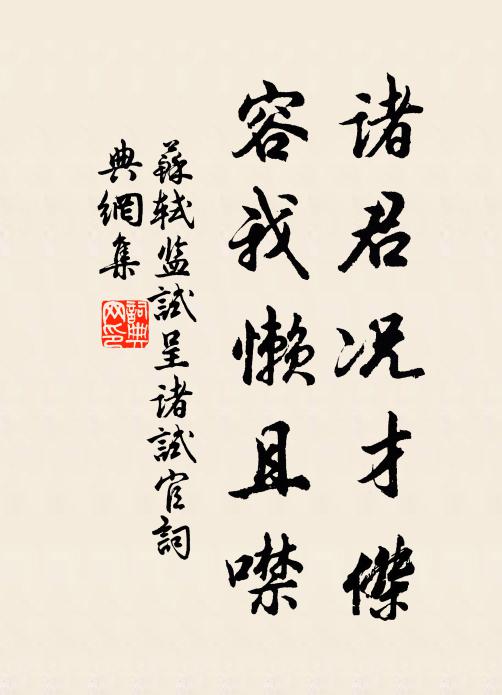 诸君况才傑
容我懒且噤
蘇軾监試呈诸試官詞
典網集
詞典网印